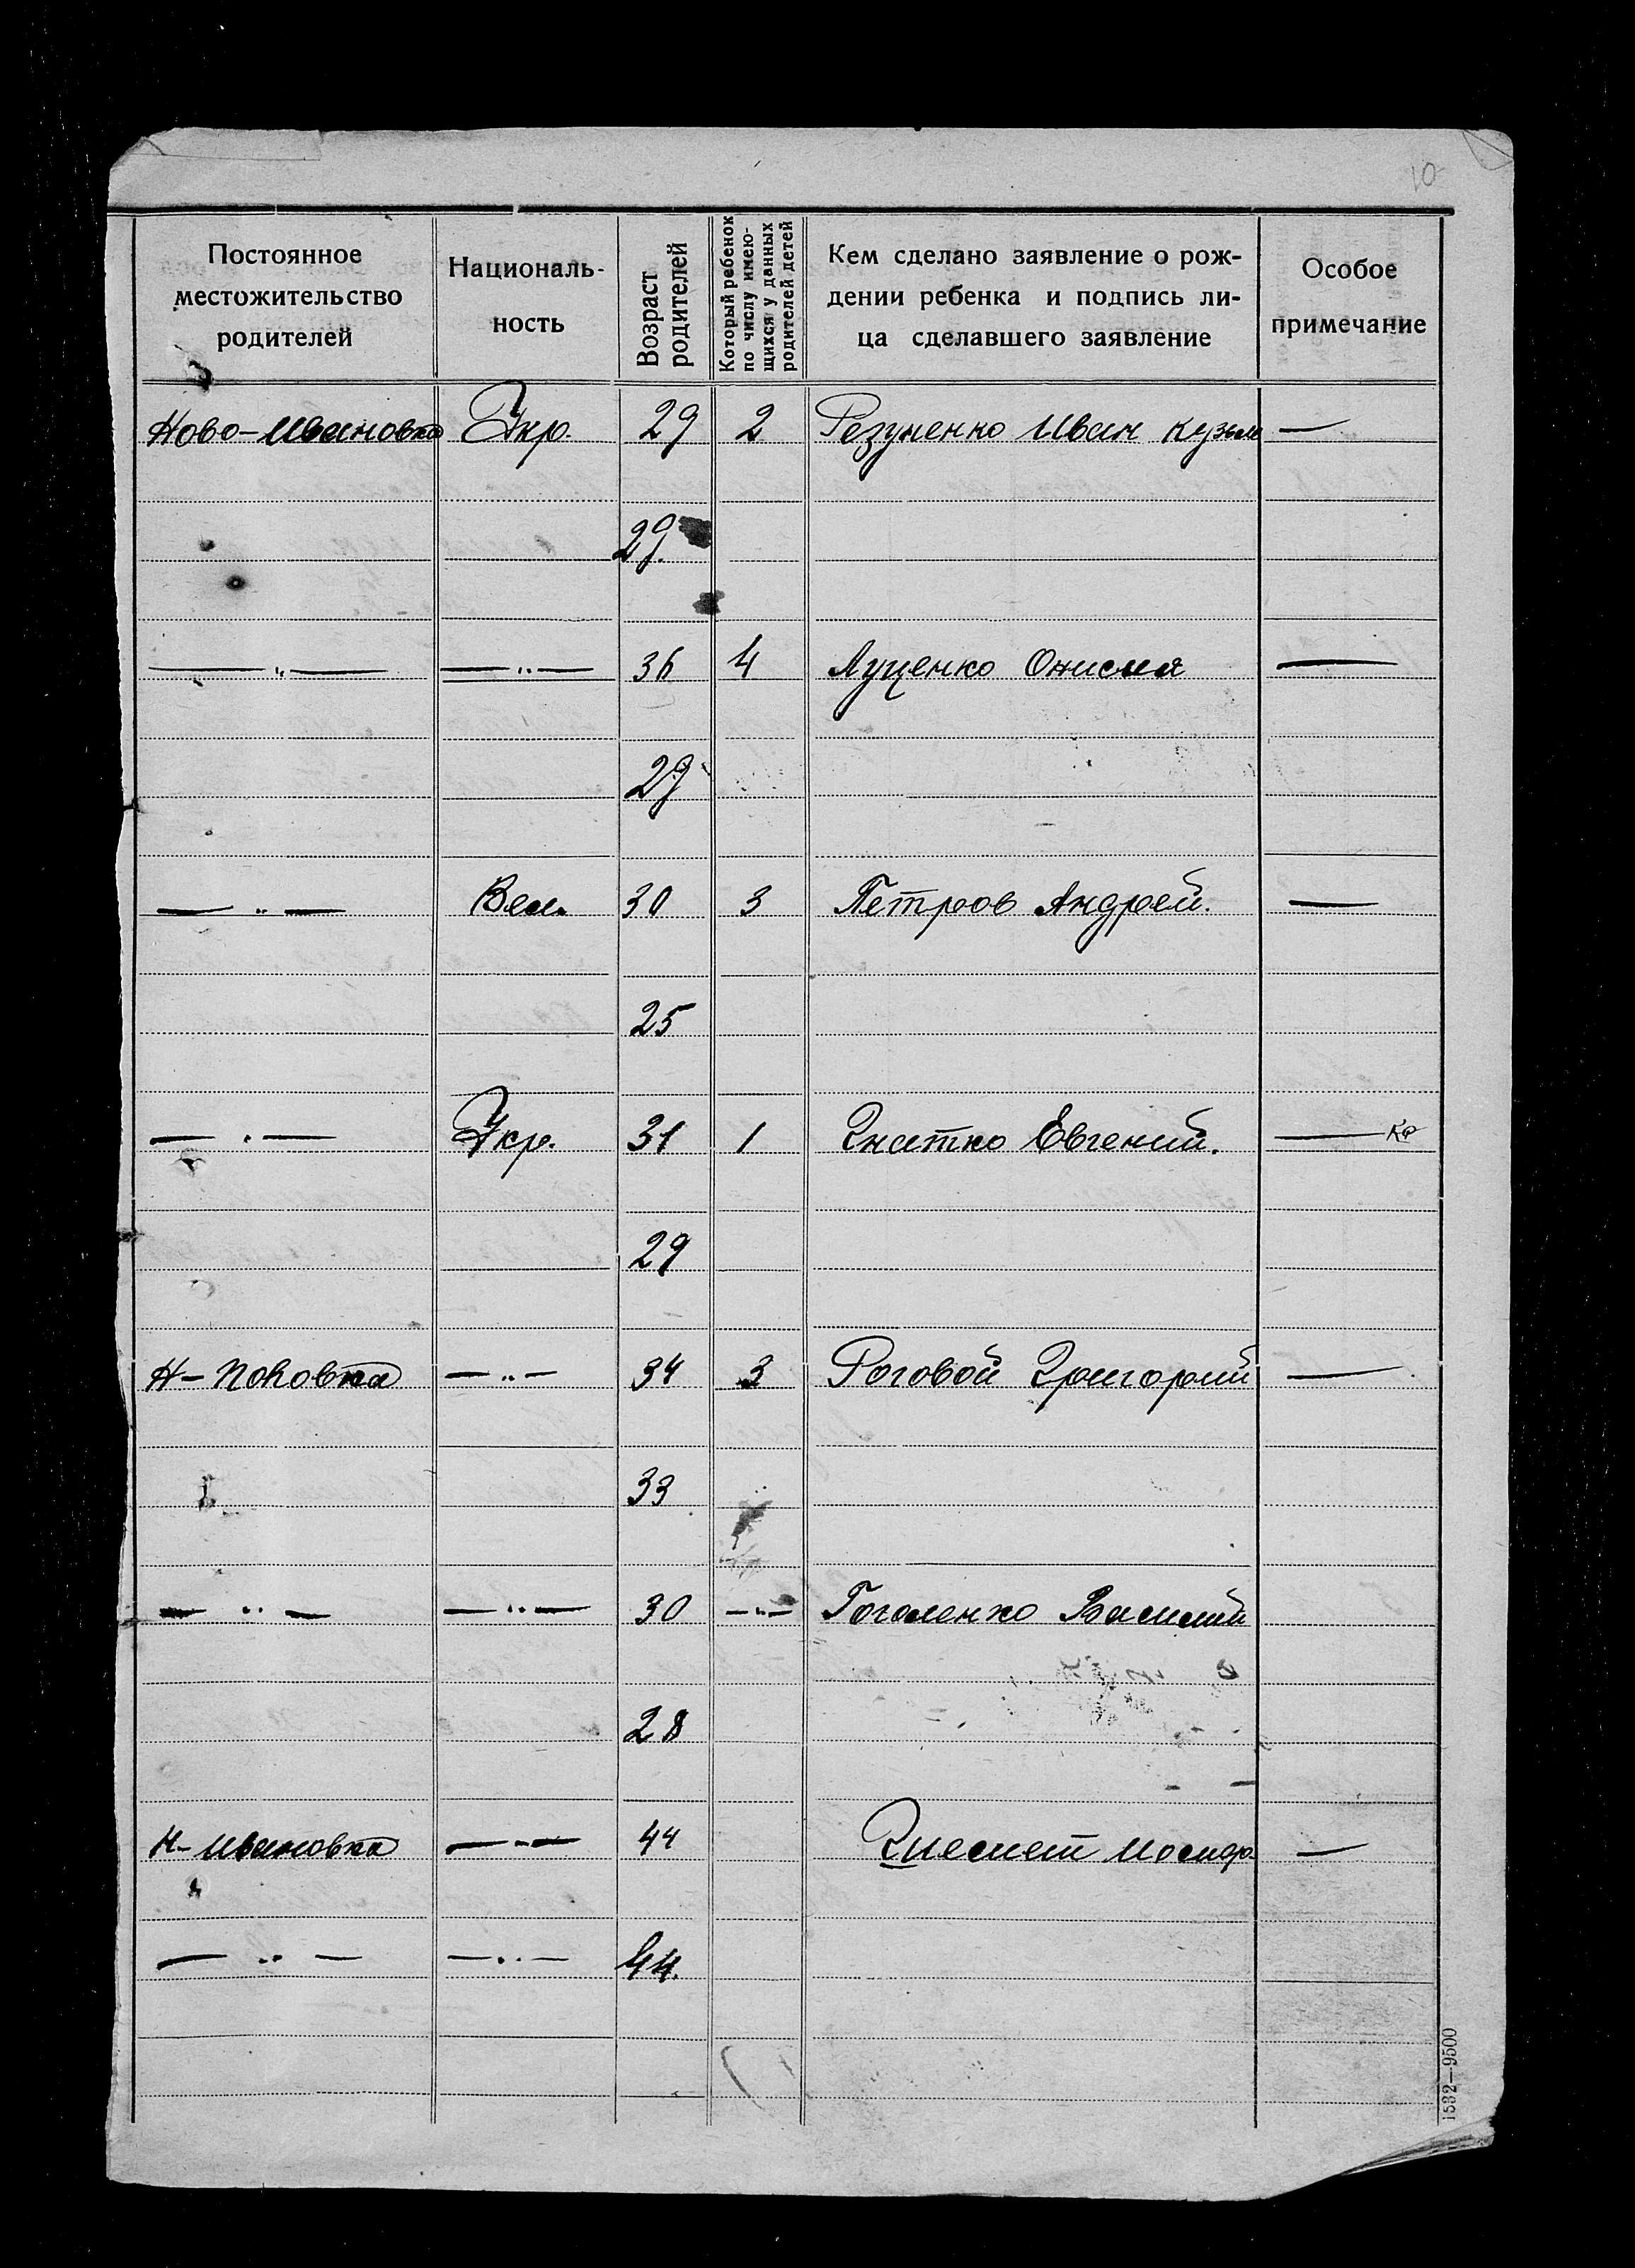 10
Постоянное
местожительство
родителей
Националь-
ность
Возраст
родителей
Который ребенок
по числу имею-
щихся у данных
родителей детей
Кем сделано заявление о рож-
дении ребенка и подпись ли-
ца сделавшего заявление
Особое
примечание
Ново-Ивановка Укр. 29 2 Резуненко Иван Кузьм —
29.
— " — — " — 36 4 Луценко Онисия —
29
— " — Вел. 30 3 Петров Андрей. —
25
— " — Укр. 31 1 Гнатко Евгений. —
29
Н-Поповка — " — 34 3 Роговой Григорий —
33
— " — — " — 30 — " — Гоголенко Василий
28
Н-Ивановка — " — 44 —
— " — — " — 44.
1532—9500